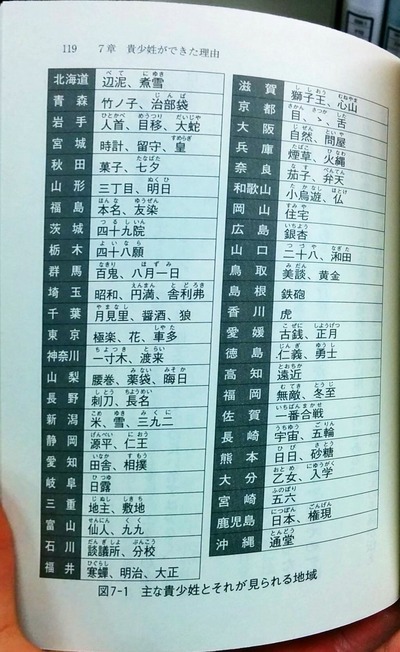 119 7章 貴少姓ができた理由
北海道 辺泥、煮雪
青森 竹ノ子、治部袋
岩手 人首、目移、大蛇
宮城 時計、留守、皇
秋田 菓子、七夕
山形 三丁目、明日
福島 本名、友染
茨城 四十九院
栃木 四十八願
群馬 百鬼、八月一日
埼玉 昭和、円満、舎利弗
千葉 月見里、醤酒、狼
東京 極楽、花、車多
神奈川 一寸木、渡来
山梨 腰巻、薬袋、晦日
長野 刺刀、長名
新潟 米、雪、三九二
静岡 源平、仁王
愛知 田舎、相撲
岐阜 日露
三重 地主、敷地
富山 仙人、九九
石川 談議所、分校
福井 寒蟬、明治、大正
滋賀 獅子王、心山
京都 目、ゝ、舌
大阪 自然、問屋
兵庫 煙草、火縄
奈良 茄子、弁天
和歌山 小鳥遊、仏
岡山 住宅
広島 銀杏
山口 二十八、和田
鳥取 美談、黄金
島根 鉄砲
香川 虎
愛媛 古銭、正月
徳島 仁義、勇士
高知 遠近
福岡 無敵、冬至
佐賀 一番合戦
長崎 宇宙、五輪
熊本 日日、砂糖
大分 乙女、入学
宮崎 五六
鹿児島 日本、権現
沖縄 通堂
図7-1 主な貴少姓とそれが見られる地域